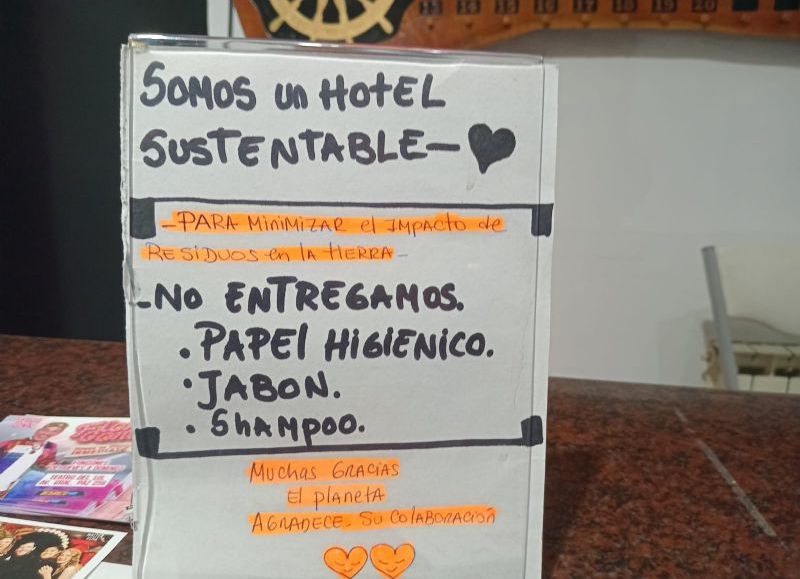 13 14 15 16 17 18 19 20
SOMOS un HOTEL
SUSTENTABLE-
-PARA MINIMIZAR el IMPACTO de
RESIDUOS en LA TIERRA-
-NO ENTREGAMOS.
. PAPEl HIGIENICO.
. JABON.
. ShAMPOO.
Muchas GRACIAS
El planeta
AGRADECE. Su COLABORACIÓN
TEATRO DEL SOL